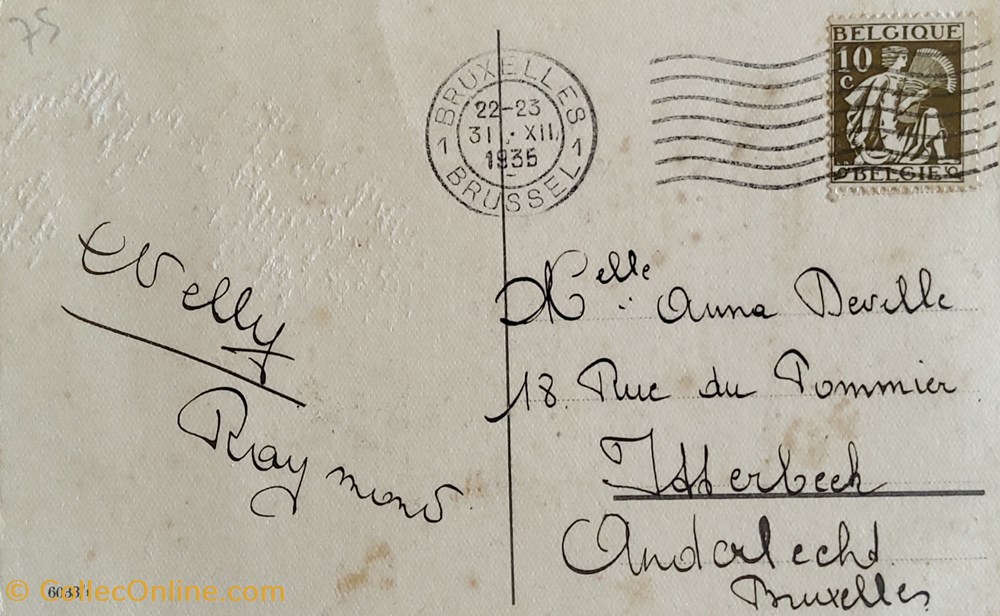 75
BRUXELLES
22-23
31 · XII
1935
1 1
BRUSSEL
BELGIQUE
10
C
BELGIE
Welly
Raymond
Melle Anna Deville
18 Rue du Pommier
Itterbeek
Anderlecht
Bruxelles
© CollecOnline.com